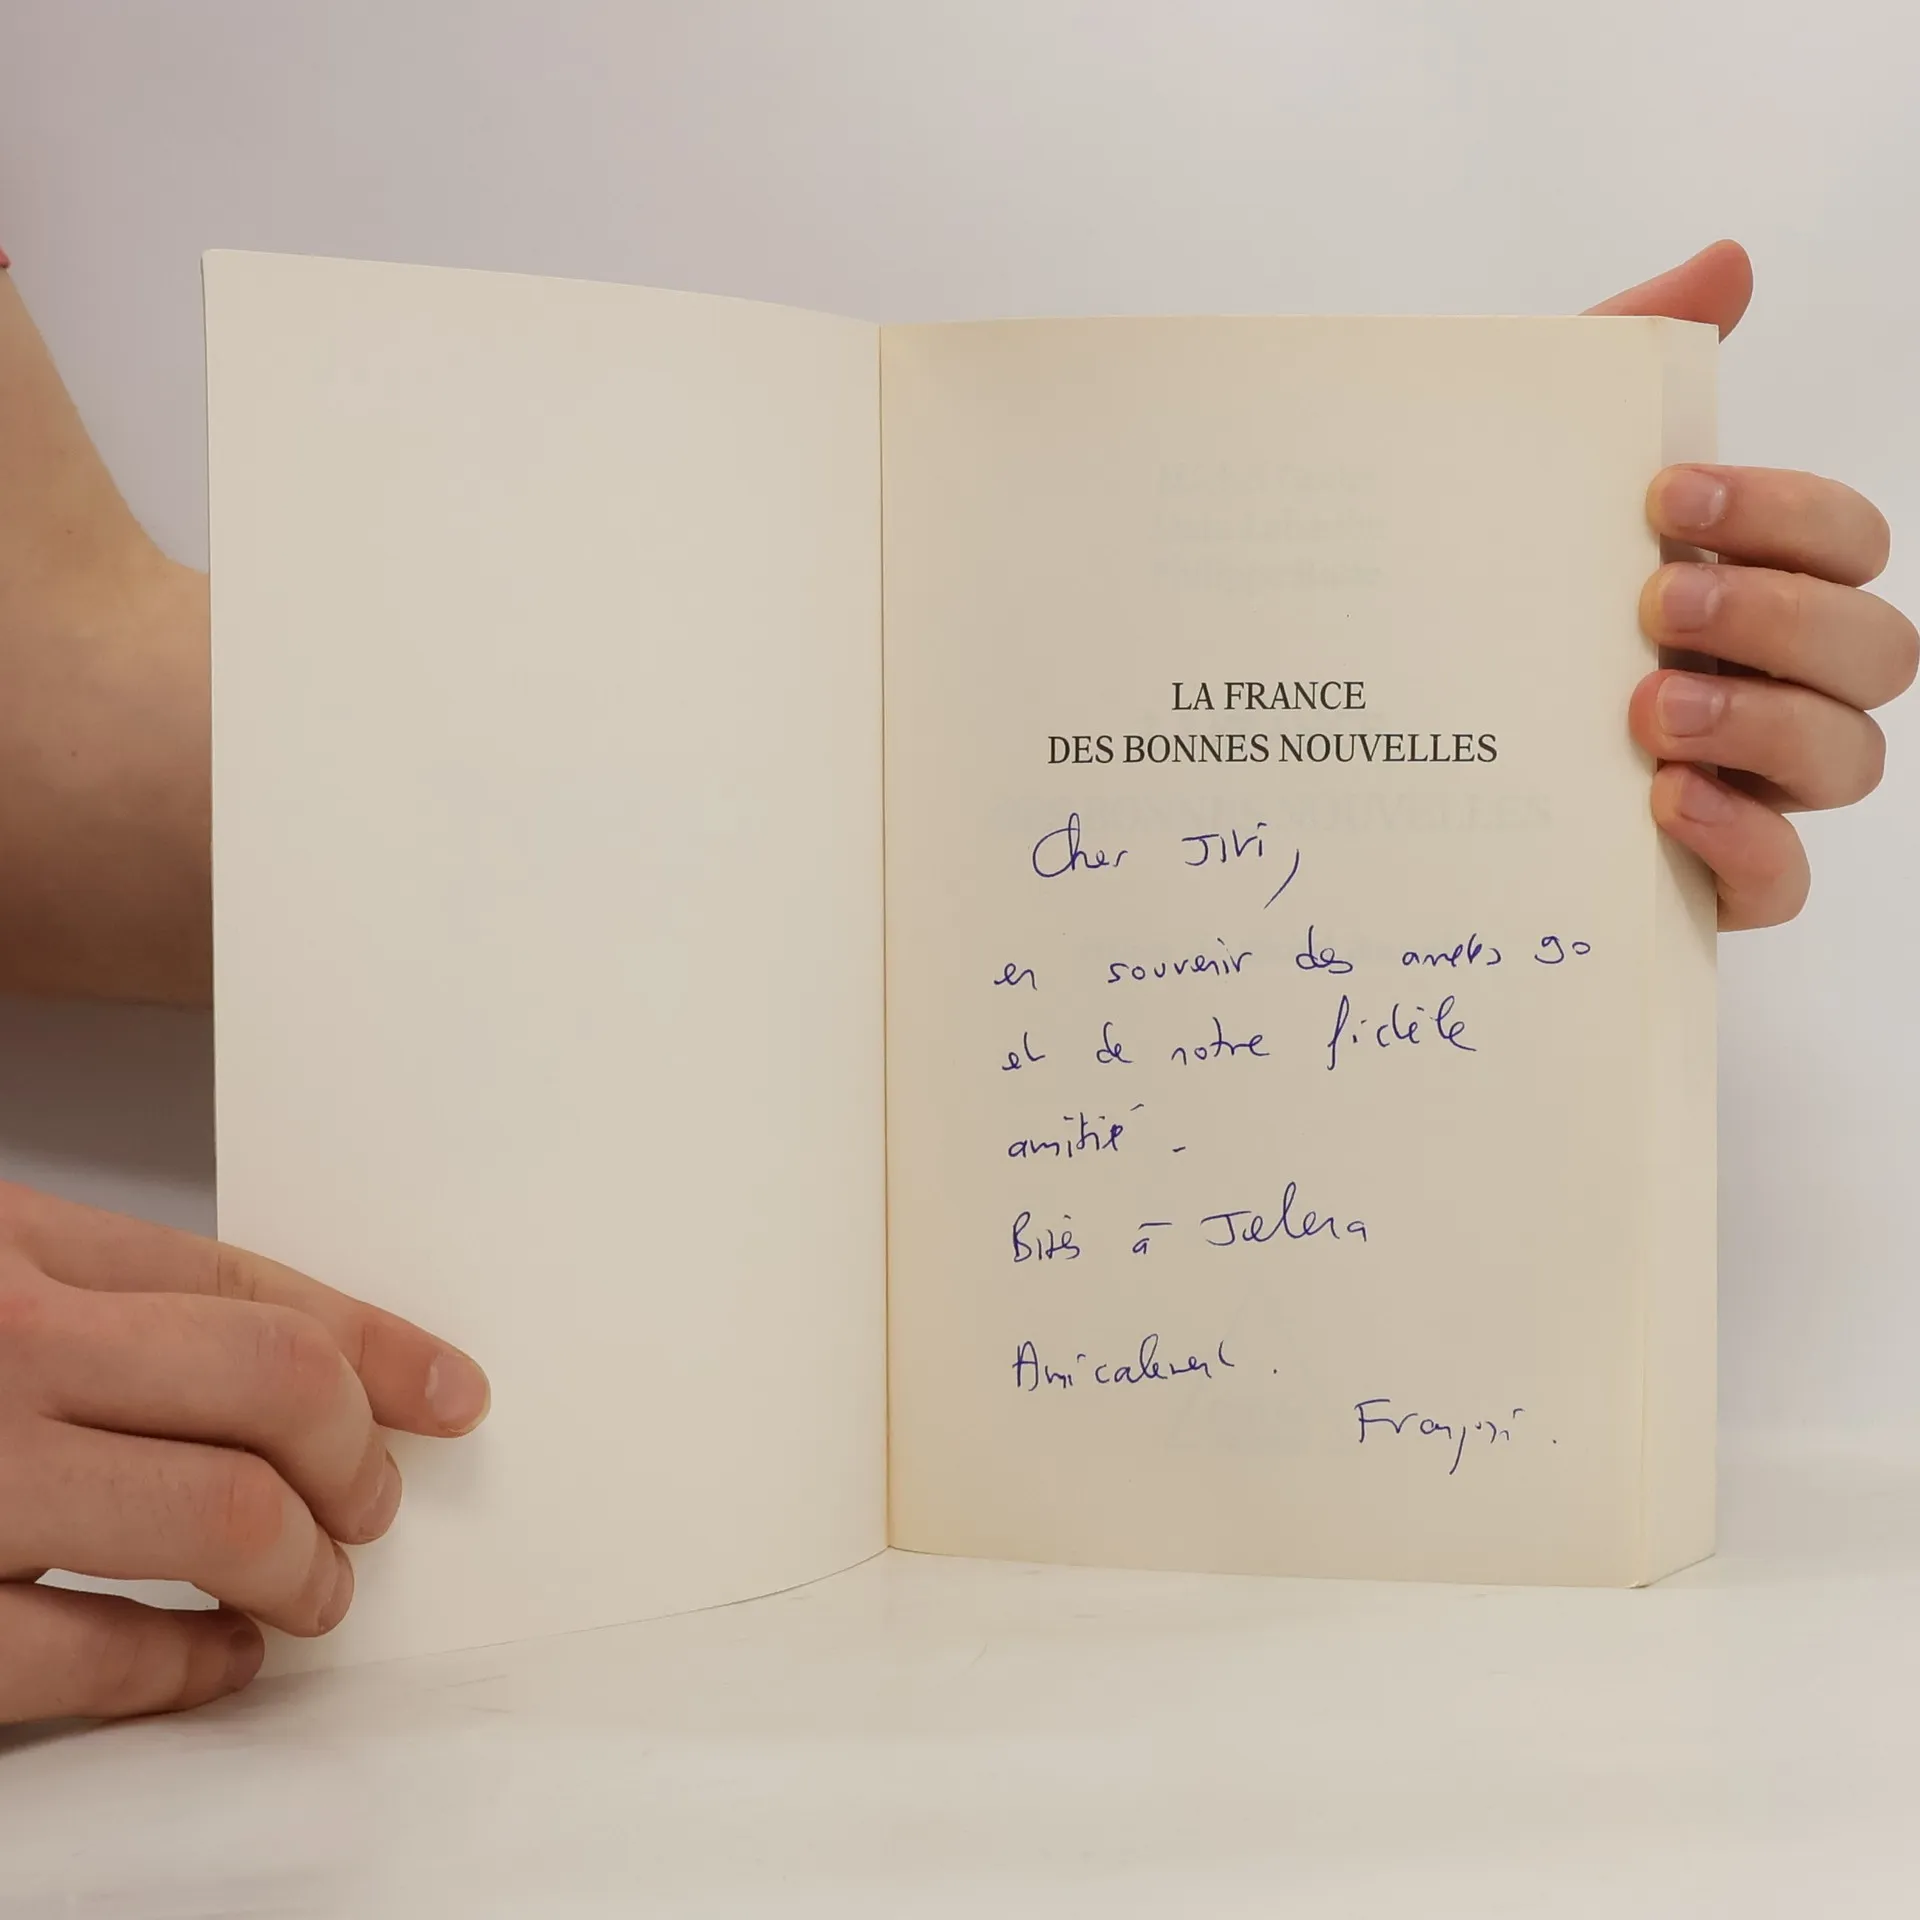 LA FRANCE
DES BONNES NOUVELLES
Cher Jiri,
en souvenir des années 90
et de notre fidèle
amitié -
à Jelena
Amicalement.